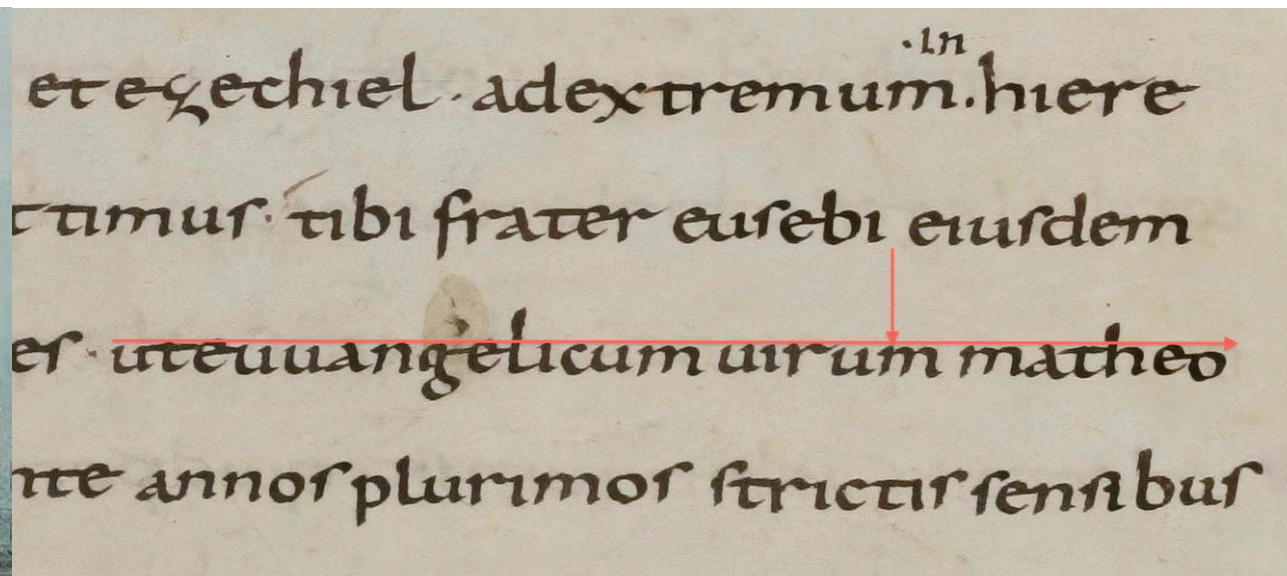 ·In
et ezechiel · adextremum. hiere
timus· tibi frater eusebi eiusdem
es · uteuuangelicum uirum matheo
nte annos plurimos strictis sensibus